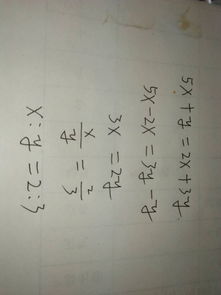 5x + y = 2x + 3y
5x - 2x = 3y - y
3x = 2y
x/y = 2/3
x : y = 2 : 3